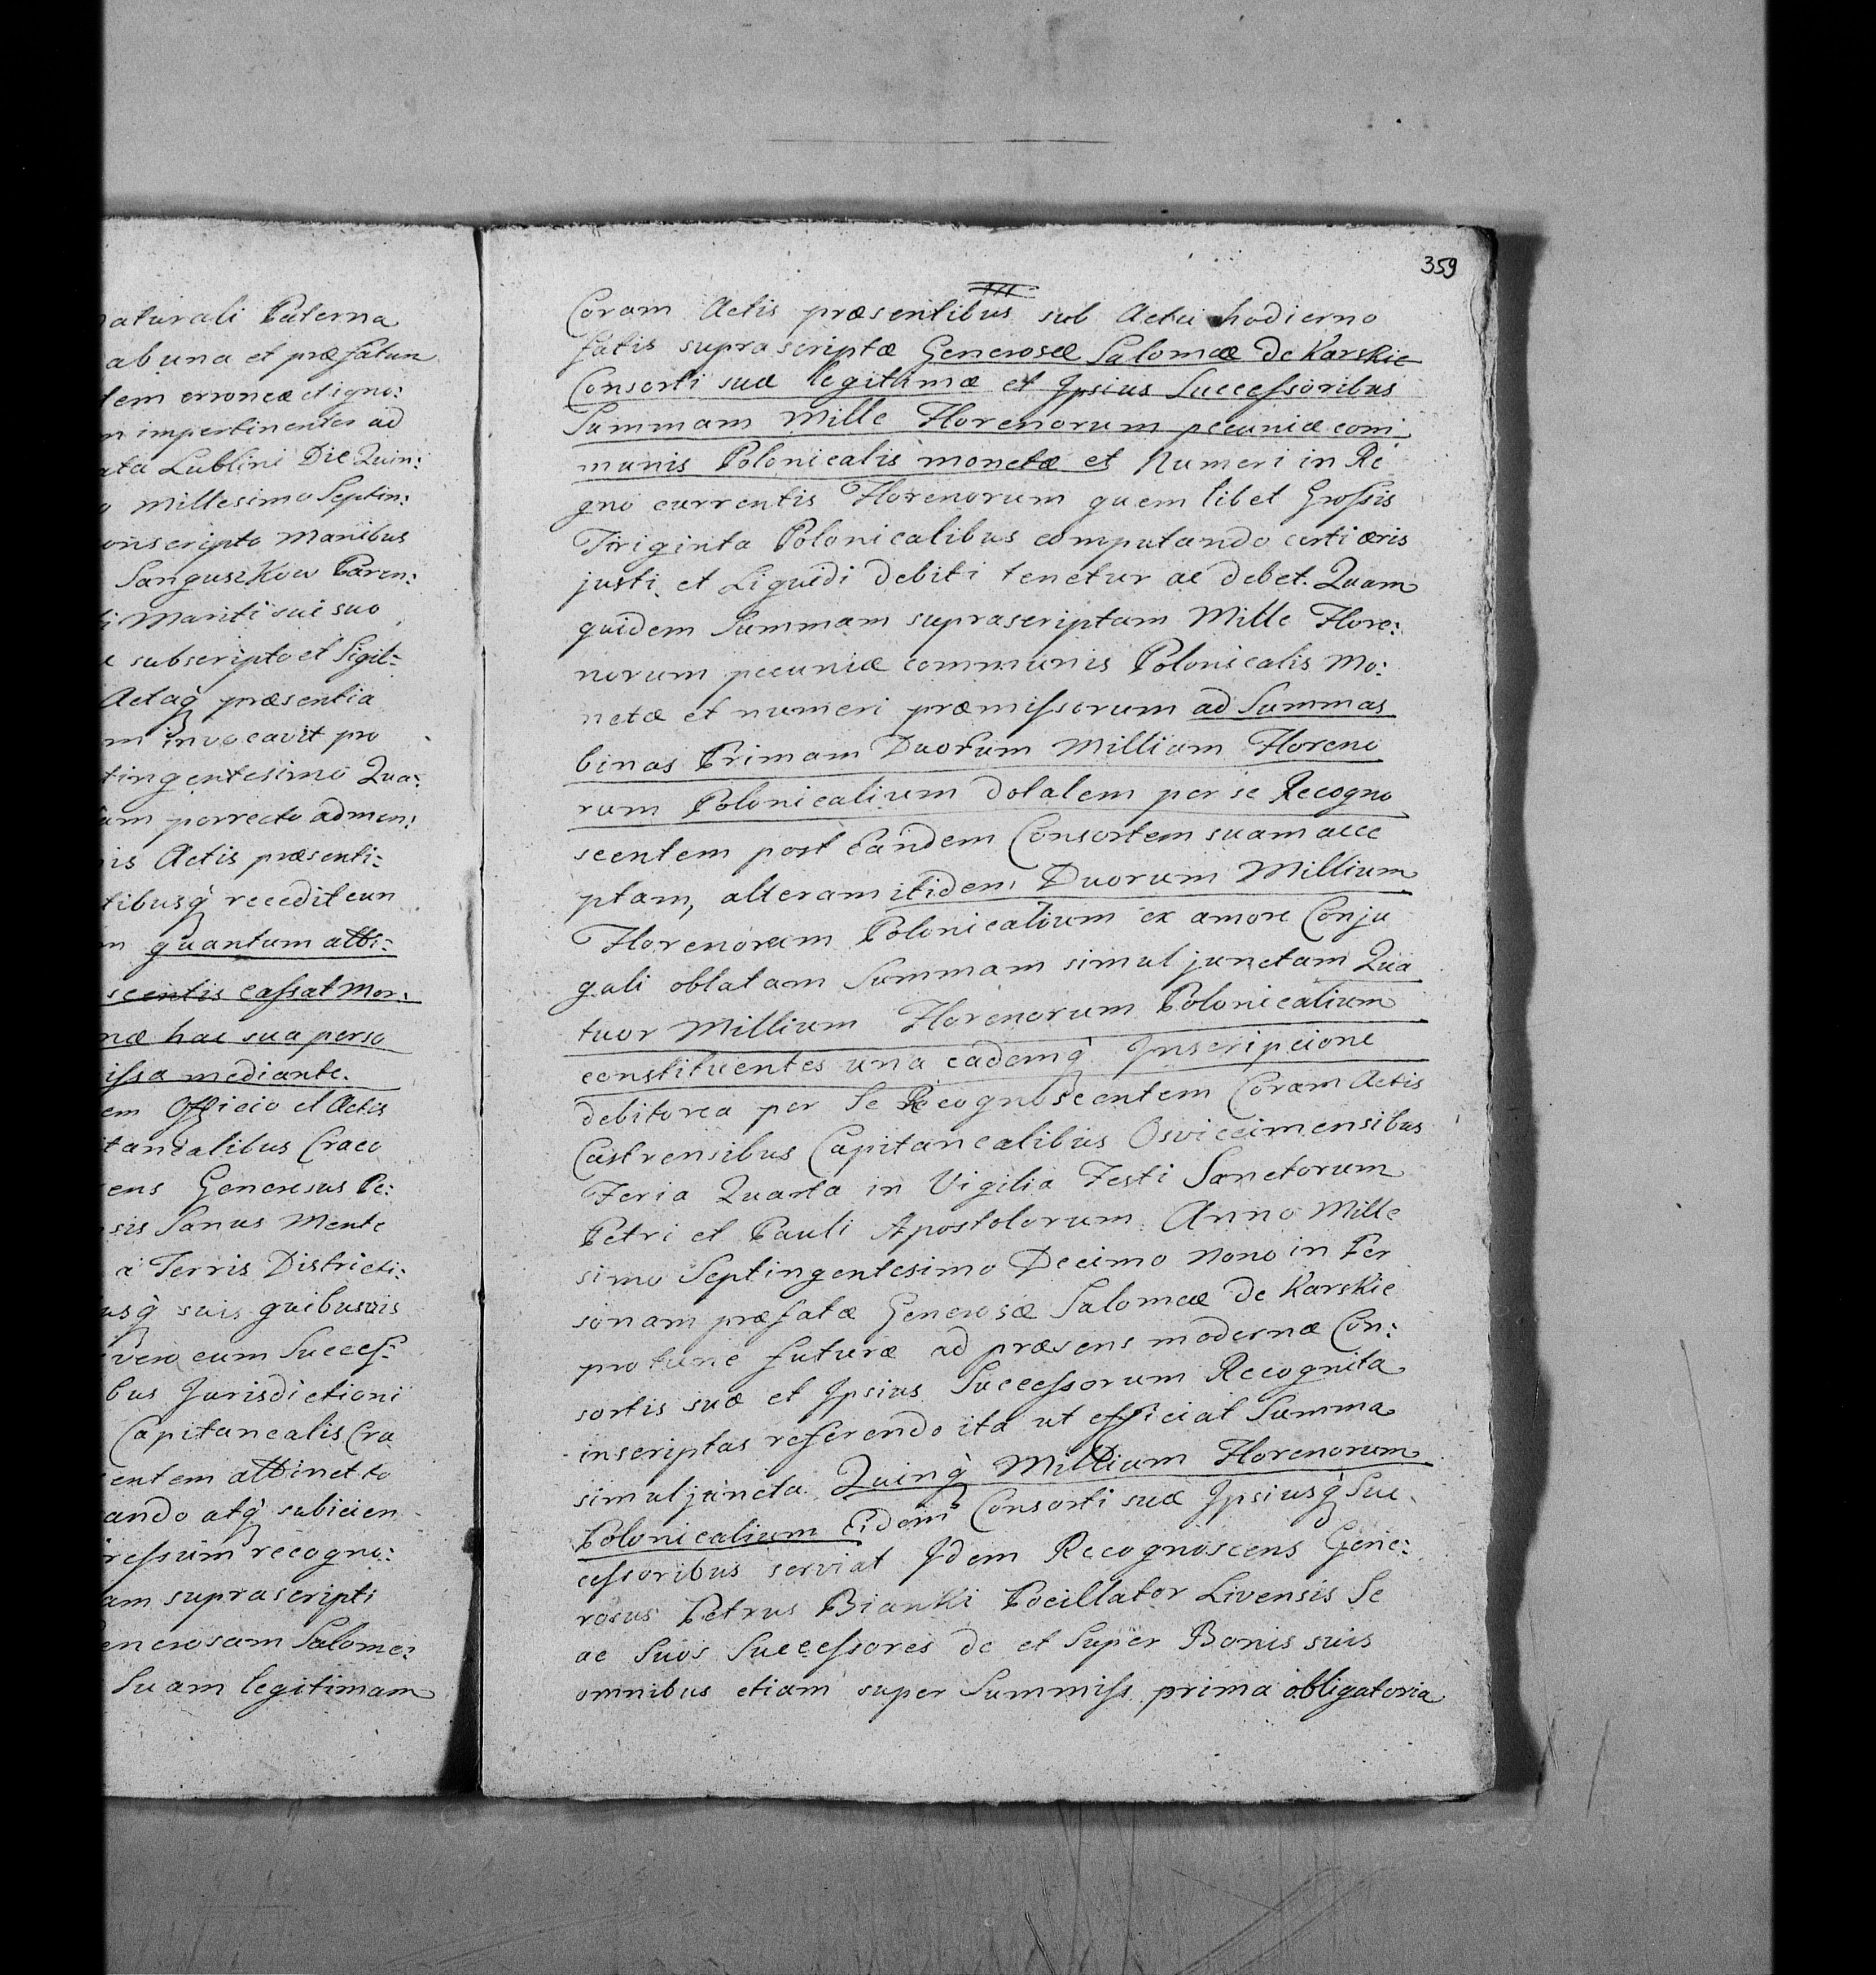 aturali Paterna
ab una et præfatum
dem erroneæ et igno:
m impertinenter ad
ata Lublini Die Quin:
o Millesimo Septin:
onscripto Manibus
Sanguszkow Paren:
i Mariti sui suo
e subscripto et Sigil:
Actaq́ præsentia
m invocavit pro
tingentesimo Qua:
um porrecto admen:
is Actis præsenti:
tibusq́ recedit eun
m quantum atti:
scentis cassat Mor:
næ hac sua perso
issa mediante.
em Officio et Actis
itanealibus Craco
ens Generosus Pe:
sis Sanus Mente
a Terris Districti:
usq́ suis quibusvis
vero cum Success:
bus Jurisdictioni
Capitanealis Cra
entem attinet to
ando atq́ subicien
ressum recogno:
am suprascripti
Generosam Salome:
Suam legitimam
359
Coram Actis præsentibus sub Actu hodierno
fatis suprascriptæ Generosæ Salomeæ de Karskie
Consorti suæ legitimæ et Ipsius Successoribus
Summam Mille Florenorum pecuniæ com
munis Polonicalis monetæ et Numeri in Re
gno currentis Florenorum quem libet Grossis
Triginta Polonicalibus computando certi æris
justi et Liquidi debiti tenetur ac debet. Quam
quidem Summam suprascriptam Mille Flore:
norum pecuniæ communis Polonicalis Mo:
netæ et numeri præmissorum ad Summas
binas Primam Duorum Millium Floreno
rum Polonicalium dotalem per se Recogno
scentem post Eandem Consortem suam acce
ptam, alteram itidem Duorum Millium
Florenorum Polonicalium ex amore Conju
gali oblatam Summam simul junctam Qua
tuor Millium Florenorum Polonicalium
constituentes una eademq́ Inscripcione
debitorea per Se Recognoscentem Coram Actis
Castrensibus Capitanealibus Osviecimensibus
Feria Quarta in Vigilia Festi Sanctorum
Petri et Pauli Apostolorum Anno Mille
simo Septingentesimo Decimo Nono in Per
sonam præfatæ Generosæ Salomeæ de Karskie
pro tunc futuræ ad præsens modernæ Con:
sortis suæ et Ipsius Successorum Recognita
inscriptas referendo ita ut efficiat Summa
simul juncta Quinq́ Millium Florenorum
Polonicalium Eidem Consorti suæ Ipsiusq́ Suc
cessoribus serviat Idem Recognoscens Gene:
rosus Petrus Bianki Pocillator Livensis Se
ac Suos Successores de et Super Bonis suis
omnibus etiam super Summiss prima obligatoria